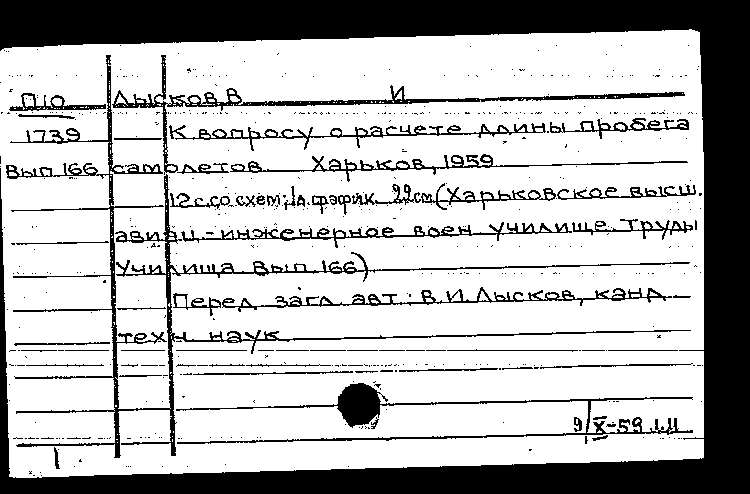 П10 Лысков, В И
1739 К вопросу о расчете длины пробега
Вып. 166 самолетов. Харьков, 1959
12 с. со схем; 1 л. график. 22 см. (Харьковское высш.
авиац.-инженерное воен училище. Труды
Училища. Вып. 166)
Перед загл. авт: В.И. Лысков, канд
техн наук
9/X-59